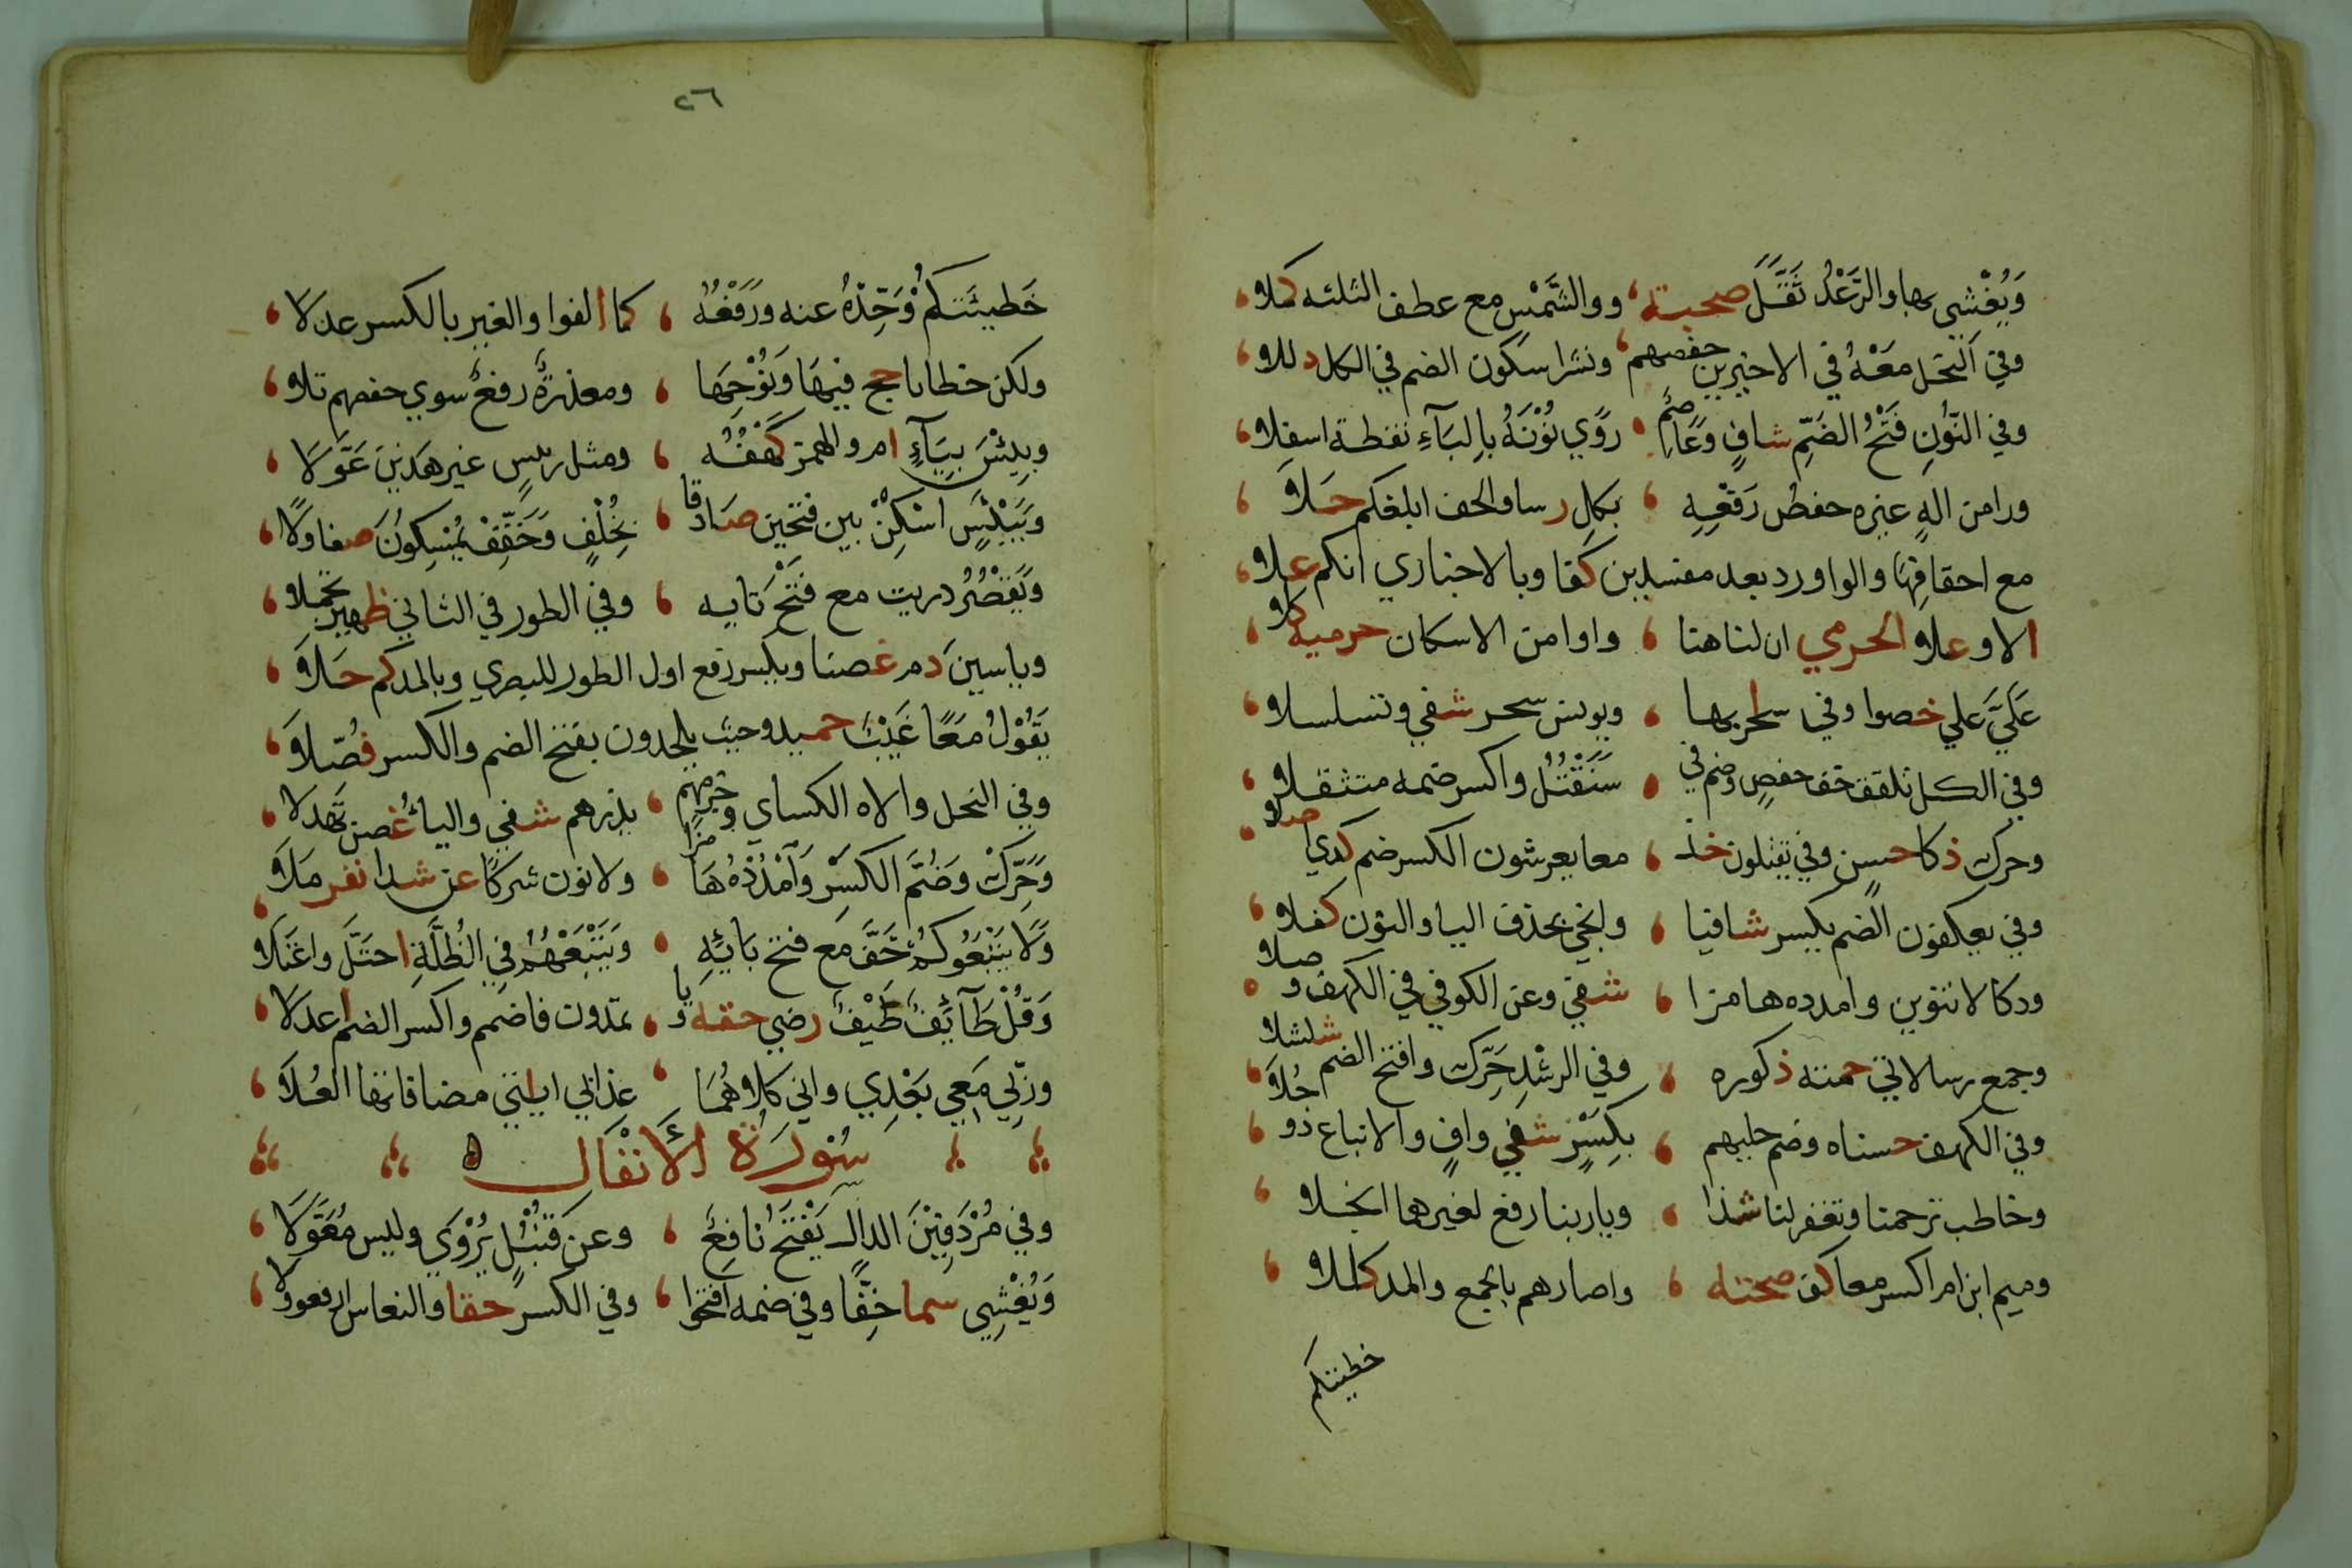 وَيُغْشي بها والرَّعْدُ ثَقَّلَ صحبته ووالشَّمْسِ مع عطف الثلثه كملا
وفي النَّحْلِ مَعْهُ في الاخيرين حفصهم ونشرا سكون الضم في الكل دللا
وفي النُّونِ فَتْحُ الضَّمِّ شافٍ وَعَاصِمٌ روَي نُوْنَهُ بالبَآءِ نقطة اسفلا
ورا من الهٍ غيره حفض رَفْعِهِ بكل رسا والخف ابلغكم حَلَا
مع احقافِهَا والواو زد بعد مفسدين كفا وبالاخباري انكم علا
الا وعلا الحرمي ان لنا هنا واوا من الاسكان حرميه كلا
عَلَيَّ علي خصوا وفي ساحر بها ويونس سحر شفي وتسلسلا
وفي الكل تلقف خف حفصٍ وضم في سَنَقْتُلُ واكسر ضمه متثقلا
وحرك ذكا حسن وفي يقتلون خذ معا يعرشون الكسر ضم كذي صلا
وفي يعكفون الضم يكسر شافيا وانجي بحذف اليا والنون كفلا
ودكا لا تنوين وامدده هامزا شفي وعن الكوفي في الكهف وصلا
وجمع رسالاتي حمته ذكوره وفي الرشْدِ حَرِّك وافتح الضم شلشلا
وفي الكهف حسناه وضم حليهم بكسرٍ شفي وافٍ والاتباع ذو حُلَا
وخاطب ترحمنا وتغفر لنا شذا ويا ربنا رفع لغيرهما انجلا
وميم ابن ام اكسر معا كفو صحبته واصارهم بالجمع والمد كللا
خطيئتكم
٢٦
خَطيئَتكُمْ وَحِّدْهُ عنه ورَفْعُهُ كما الفوا والغير بالكسر عدلَا
ولكن خطايا حج فيهَا وَنُوْحِهَا ومعذرةٌ رفعٌ سوي حفصهم تلا
وبِيْسَ بِيَآءٍ ام والهمز كَهْفُهُ ومثل رئيسٍ غير هَذينِ عَوَّلَا
وَبَيْئَسٍ اسْكِنْ بين فتحين صَادقا بخُلْفٍ وَخَفِّفْ يُمْسِكُونَ صفا وِلَا
وَيَقْصُرُ ذريت مع فَتْحِ تَايه وفي الطور في الثاني ظهير تحملا
وياسينَ دم غصنا ويكسر رفع اول الطور للبصري وبالمد كم حَلَا
يَقُوْلُ مَعًا غَيْبٌ حميد وحيث يلحدون بفتح الضم والكسر فُصِّلَا
وفي النحل والاه الكساي وجزمهم يذرهم شفي واليآءُ غصن تهدلا
وَحَرِّكْ وَضُمَّ الكَسْرَ وَامْدُدْهُ هَامزا ولا نون شركًا عن شذا نفر مَلَا
وَلَا يَتْبَعُوكُمْ خَفَّ مَع فتح بَايِهِ وَيَتْبَعُهُمْ في الظُلَّةِ احتَلَّ واعْتَلَا
وَقُلْ طَآئِفٌ طَيْفٌ رضي حقه ويا يمدون فاضمم واكسر الضم اعدلَا
وربّي مَعِي بَعْدِي واني كِلَاهُمَا عذابي اياتي مضافاتها العُلَا
سُوْرَةُ الأَنْفَال
وفي مُرْدَفِيْنَ الدال يَفْتَحُ نافعٌ وعن قُنْبُلٍ يُرْوَي وليس مُعَوَّلَا
وَيُغْشِي سما خِفًّا وفي ضمه افتحوا وفي الكسر حقا والنعاس ارفعوا ولَا